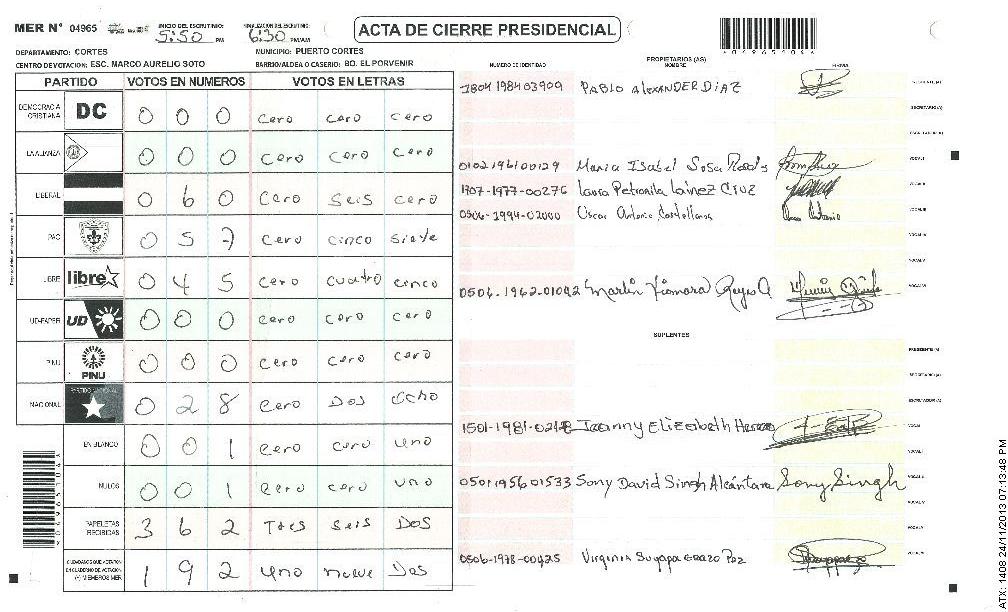 MER N° 04965
INICIO DEL ESCRUTINIO: 5:50 PM
FINALIZACION DEL ESCRUTINIO: 6:30 PM/AM
ACTA DE CIERRE PRESIDENCIAL
DEPARTAMENTO: CORTES
MUNICIPIO: PUERTO CORTES
CENTRO DE VOTACION: ESC. MARCO AURELIO SOTO
BARRIO/ALDEA O CASERIO: BO. EL PORVENIR
PARTIDO VOTOS EN NUMEROS VOTOS EN LETRAS
DEMOCRACIA CRISTIANA DC 0 0 0 cero cero cero
LA ALIANZA 0 0 0 cero cero cero
LIBERAL 0 6 0 cero seis cero
PAC 0 5 7 cero cinco siete
LIBRE libre 0 4 5 cero cuatro cinco
UD-FAPER UD 0 0 0 cero cero cero
PINU PINU 0 0 0 cero cero cero
NACIONAL PARTIDO NACIONAL 0 2 8 cero Dos ocho
EN BLANCO 0 0 1 cero cero uno
NULOS 0 0 1 cero cero uno
PAPELETAS RECIBIDAS 3 6 2 Tres seis Dos
CIUDADANOS QUE VOTARON EN CUADERNO DE VOTACION (+) MIEMBROS MER 1 9 2 uno nueve Dos
PROPIETARIOS (AS)
NUMERO DE IDENTIDAD NOMBRE FIRMA
1804 1984 03909 PABLO ALEXANDER DIAZ PRESIDENTE (A)
SECRETARIO (A)
ESCRUTADOR (A)
Maria Isabel Sosa VOCAL I
1707-1977-00276 Laura Petronila Lainez Cruz VOCAL II
0506-1994-02000 Oscar Antonio Castellanos VOCAL III
VOCAL IV
VOCAL V
0506-1962-01042 Martin Reyes VOCAL VI
SUPLENTES
PRESIDENTE (A)
SECRETARIO (A)
ESCRUTADOR (A)
1501-1981-02178 Elizabeth VOCAL I
VOCAL II
0501 1956 01533 Sony David Singh Alcántara Sony Singh VOCAL III
VOCAL IV
VOCAL V
0506-1978-00425 Virginia Suyapa Erazo Paz VOCAL VI
ATX: 1408 24/11/2013 07:13:48 PM